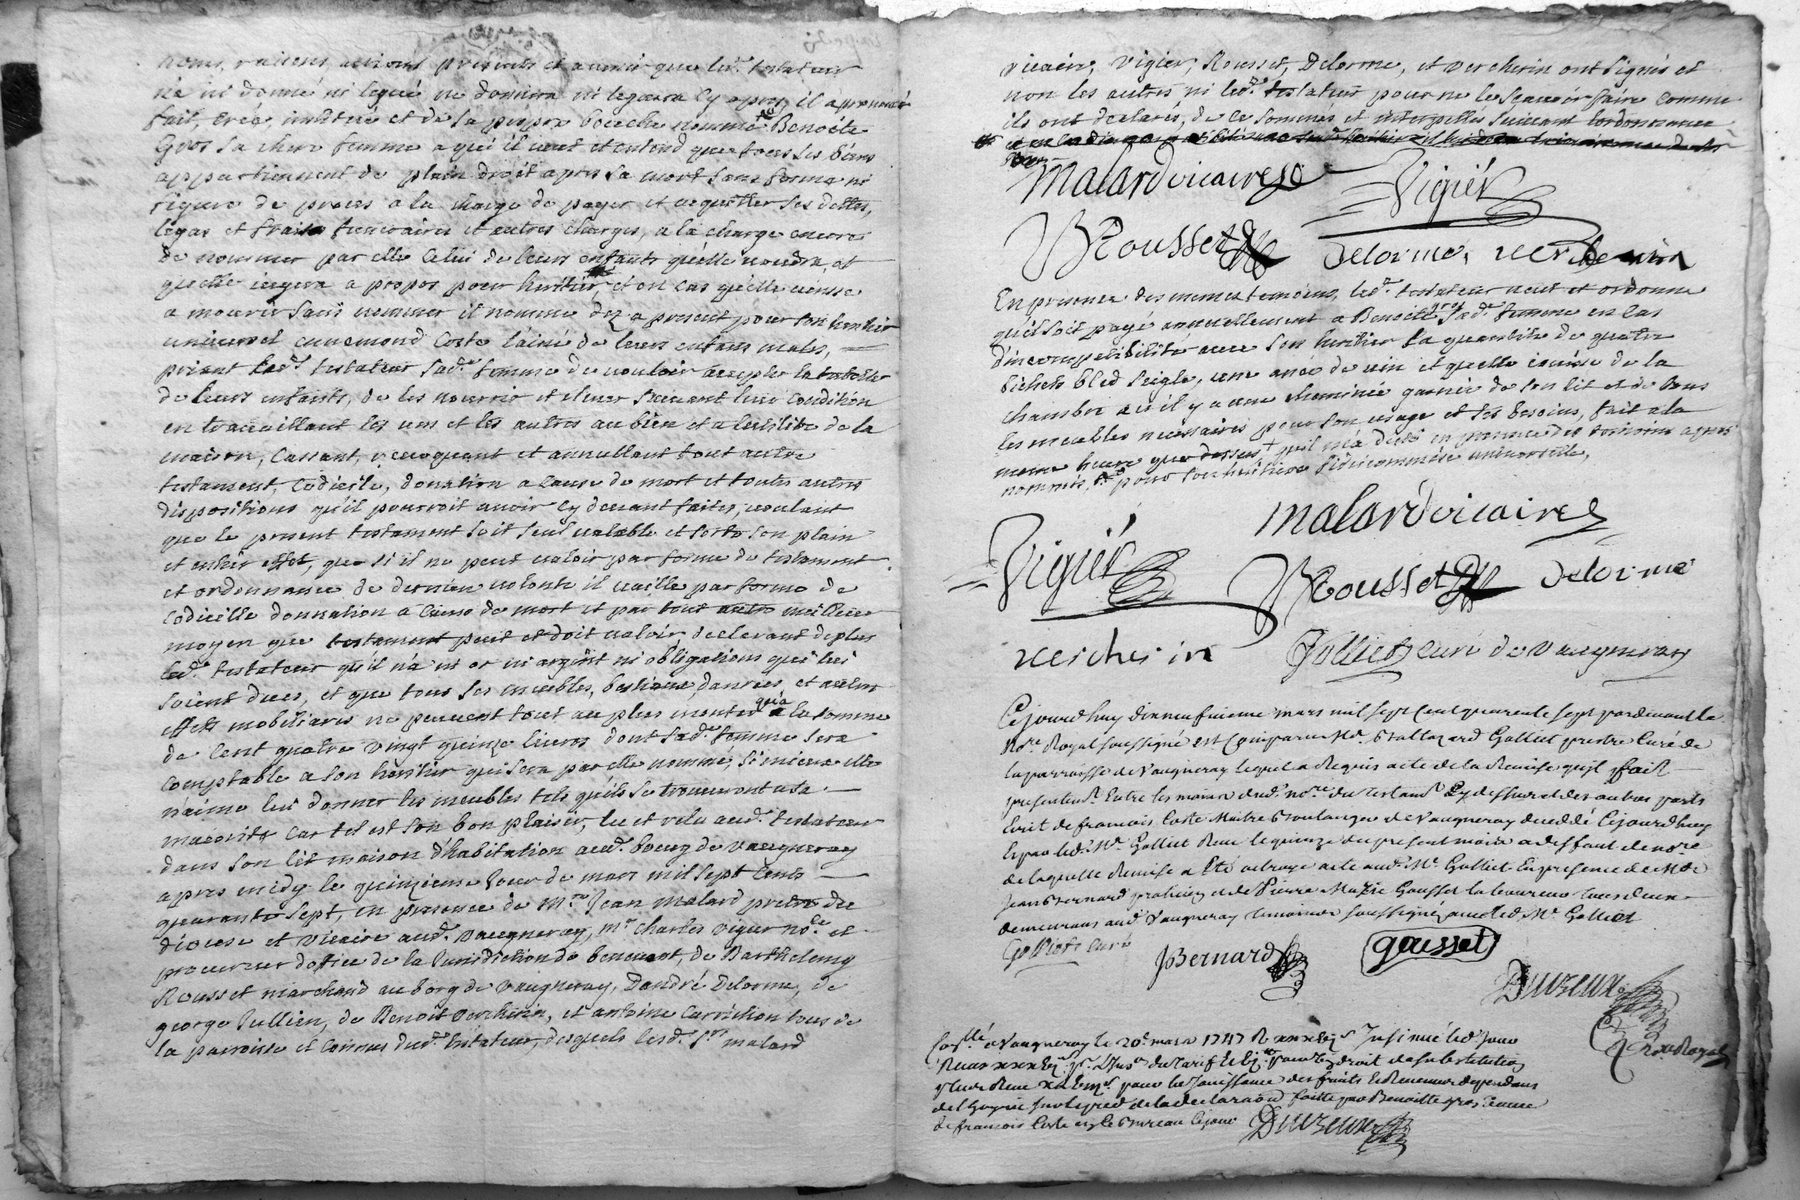 noms, raisons, actions presents et avenir que led. testateur
n'a ni donné ni legué ne donnera ni leguera cy apres, il a
fait, créé, institué et de sa propre bouche nommé Benoite
Gros sa chere femme a qui il veut et entend que tous ses biens
appartiennent de plain droit apres sa mort sans forme ni
figure de proces a la charge de payer et acquitter ses dettes,
legas et fraix funeraires et autres charges, a la charge encore
de nommer par elle celui de leurs enfants qu'elle voudra, et
quelle jugera a propos pour heritier et en cas qu'elle vensse
a mourir sans nommer il nomme dez a present pour son heritier
universel ennemond Coste l'ainé de leurs enfans males,
priant led. testateur sad. femme de vouloir accepter la tutelle
de leurs enfants, de les nourrir et elever suivant leur condition
en travaillant les uns et les autres au bien et a l'utilité de la
maison, Cassant, revoquant et annullant tout autre
testament, Codicile, donation a cause de mort et toutes autres
dispositions qu'il pourroit avoir cy devant faites, voulant
que le present testament soit seul valable et sorte son plain
et entier effet, que si il ne peut valoir par forme de testament
et ordonnance de derniere volonté il vaille par forme de
Codicille donnation a cause de mort et par tout autre meilleur
moyen que testament peut et doit valoir, declarant de plus
led. testateur qu'il n'a ni or ni argent ni obligations qui lui
soient dues, et que tous ses meubles, bestiaux danrées et autres
effets mobiliaires ne peuvent tout au plus monter qu'a la somme
de Cent quatre vingt quinze livres dont sad. femme sera
Comptable a son heritier qui sera par elle nommé, si mieux elle
n'aime lui donner les meubles tels qu'ils se trouveront a sa
majorité car tel est son bon plaisir, lu et relu aud. testateur
dans son lit maison d'habitation aud. bourg de vaugneray
apres midy le quinzieme jour de mars mil sept cents
quarante sept, en presence de Mre Jean malard pretre du
diocese et vicaire aud. vaugneray, Mr charles vigier no.re et
procureur d'office de la Jurisdiction de benevent, de Barthelemy
Rousset marchand au borg de vaugneray, D'andré Delorme, de
george Jullien, de Benoit Vercherin, et antoine tous de
la parroisse et Connus dud. testateur, desquels lesd. Srs malard
vicaire, vigier, Rousset, Delorme, et Vercherin ont signés et
non les autres ni led. testateur pour ne le sçavoir faire comme
ils ont declarés, de ce sommés et interpellés suivant l'ordonnance
malard vicaire
Vigier
Rousset
Delorme, vercherin
En presence des memes temoins, led. testateur veut et ordonne
qu'il soit payé annuellement a Benoite gros sad. femme en cas
d'incompatibilité avec son heritier la quantité de quatre
bichets bled seigle, une anée de vin et quelle jouisse de la
chambre ou il y a une cheminée garnie de son lit et de tous
les meubles necessaires pour son usage et ses besoins, fait a la
meme heure que dessus qu'il n'a dicté en presence des temoins apres
nommés, pour son heritiere fideicommise universelle,
malard vicaire
Vigier
Rousset
Delorme
vercherin
Golliet curé de Vaugneray
Cejourdhuy dixneufvieme mars mil sept Cent quarente sept pardevant le
No.re Royal soussigné est Comparu Mr. Baltazard Golliet prestre Curé de
la parroisse de Vaugneray lequel a Requis acte de la Remise qu'il fait
presentem.t Entre les mains dud. no.re du testam.t Cy dessus et des autres parts
Ecrit de francois Coste Maitre Boulanger de Vaugneray decedé Cejourdhuy
Et par led. Mr. Golliet Receu le quinze du present mois a deffaut de no.re
de laquelle Remise a Eté octroyé acte aud. Mr. Golliet En presence de Me
Jean Bernard praticien et de Pierre Marie Gousset laboureur tous deux
demeurans aud. Vaugneray temoins soussignéz avec led. Mr. Golliet
Golliet curé
JBernard
gousset
Duzeun
no.re Royal
Con.llé a Vaugneray le 20e mars 1747 Insinué led. Jour
de francois Coste led. Bureau Cejour
Duzeun